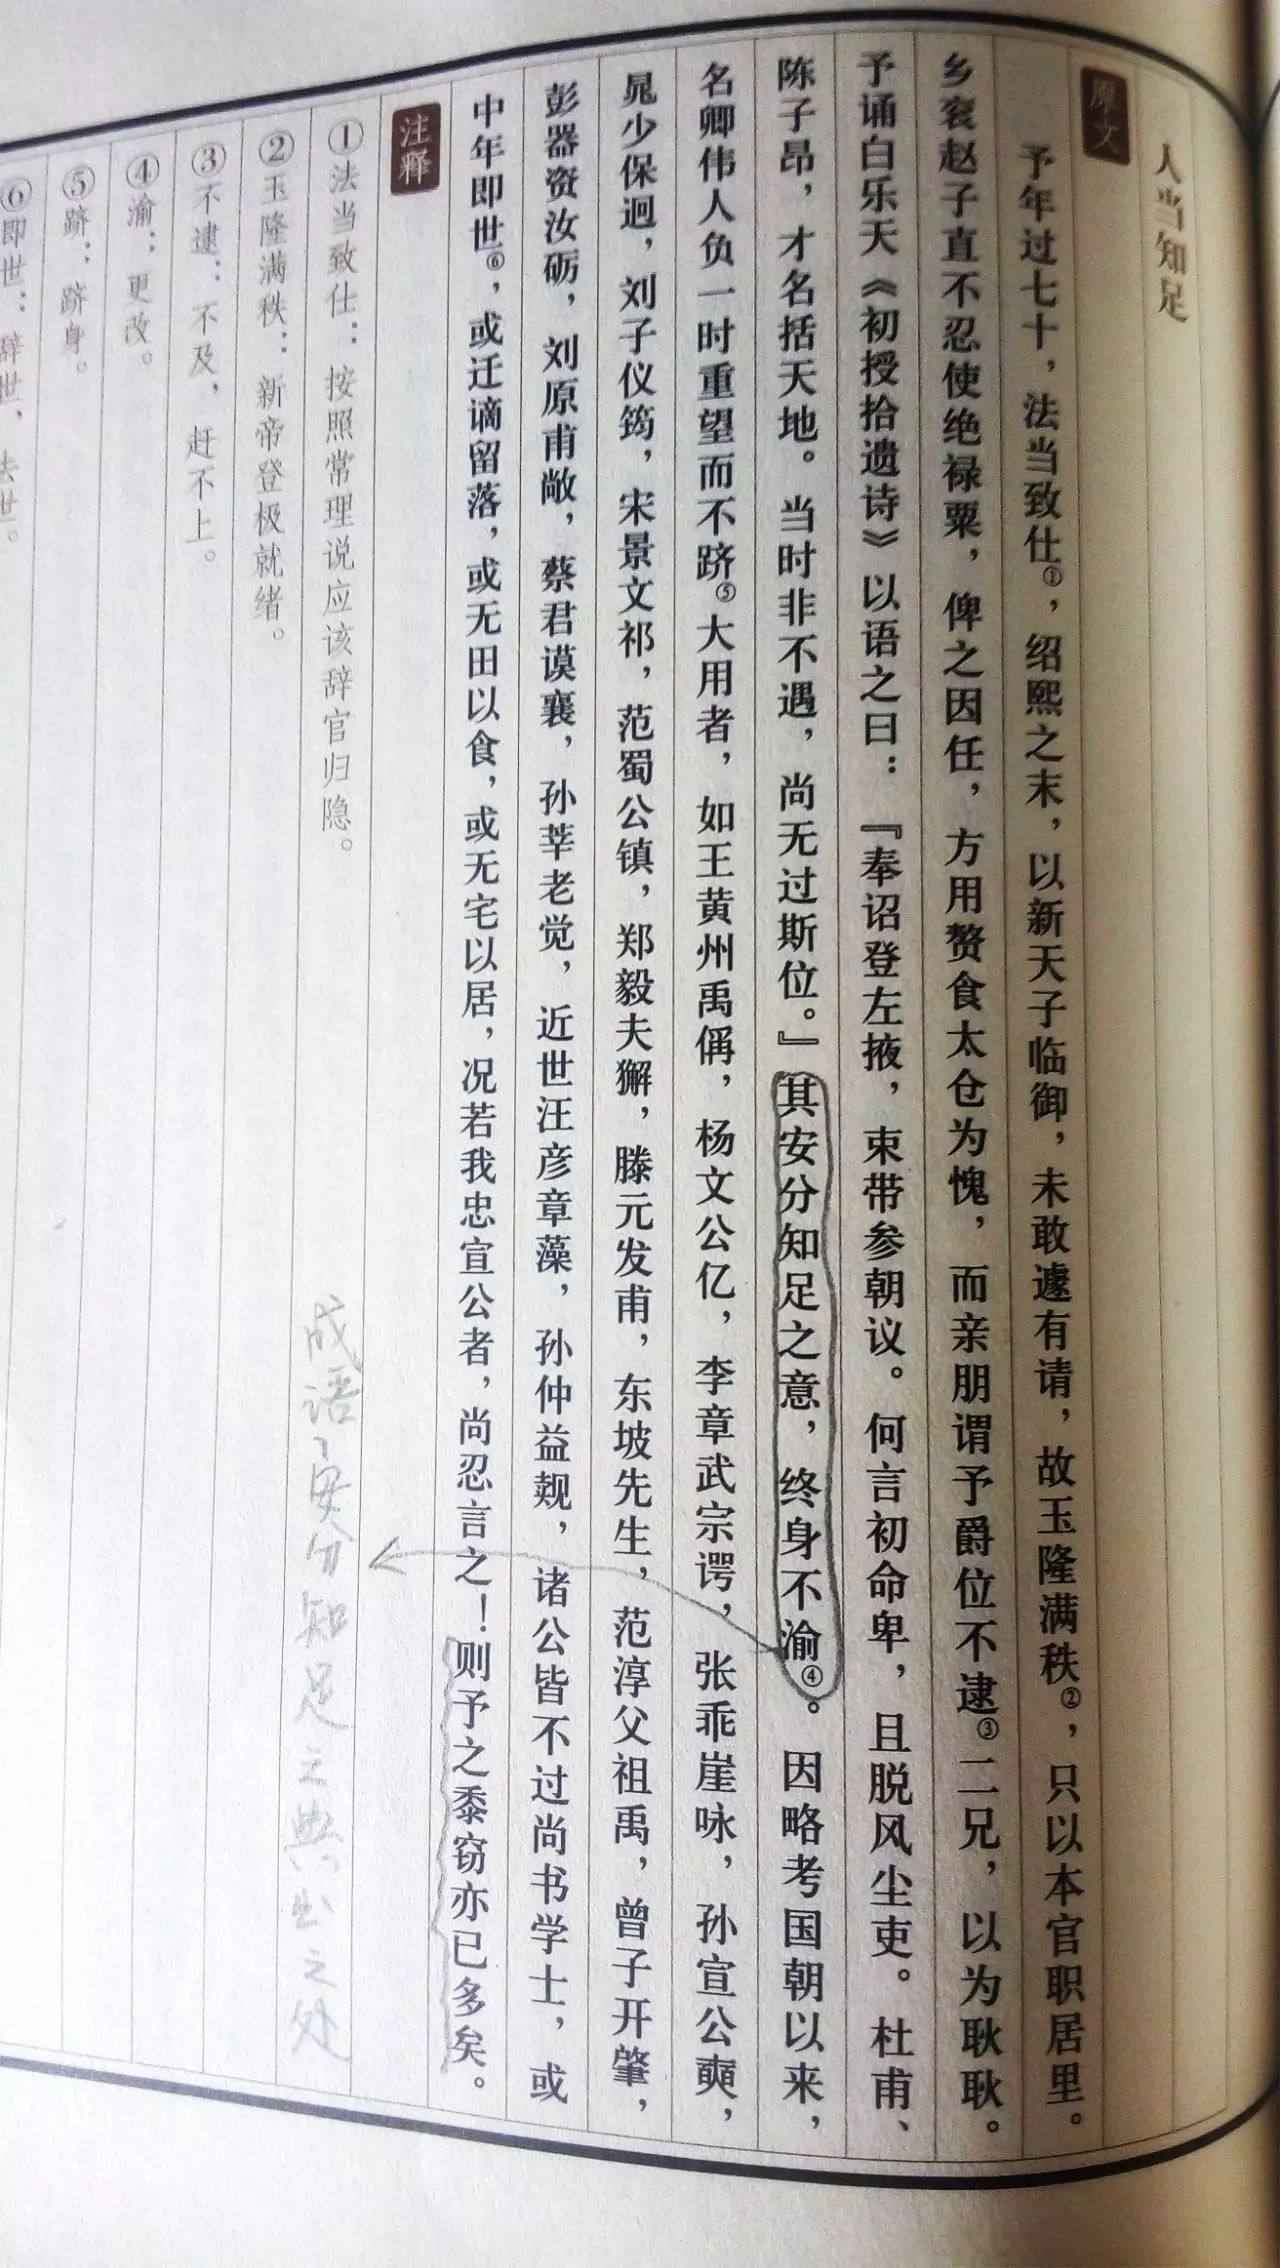 人当知足
原文
予年过七十，法当致仕①，绍熙之末，以新天子临御，未敢遽有请，故玉隆满秩②，只以本官职居里。
乡衮赵子直不忍使绝禄粟，俾之因任，方用赘食太仓为愧，而亲朋谓予爵位不逮③二兄，以为耿耿。
予诵白乐天《初授拾遗诗》以语之曰：『奉诏登左掖，束带参朝议。何言初命卑，且脱风尘吏。杜甫、
陈子昂，才名括天地。当时非不遇，尚无过斯位。』其安分知足之意，终身不渝④。因略考国朝以来，
名卿伟人负一时重望而不跻⑤大用者，如王黄州禹偁，杨文公亿，李章武宗谔，张乖崖咏，孙宣公奭，
晁少保迥，刘子仪筠，宋景文祁，范蜀公镇，郑毅夫獬，滕元发甫，东坡先生，范淳父祖禹，曾子开肇，
彭器资汝砺，刘原甫敞，蔡君谟襄，孙莘老觉，近世汪彦章藻，孙仲益觌，诸公皆不过尚书学士，或
中年即世⑥，或迁谪留落，或无田以食，或无宅以居，况若我忠宣公者，尚忍言之！则予之黍窃亦已多矣。
注释
①法当致仕：按照常理说应该辞官归隐。
②玉隆满秩：新帝登极就绪。
③不逮：不及，赶不上。
④渝：更改。
⑤跻：跻身。
⑥即世：辞世，去世。
成语、安分知足之典出之处